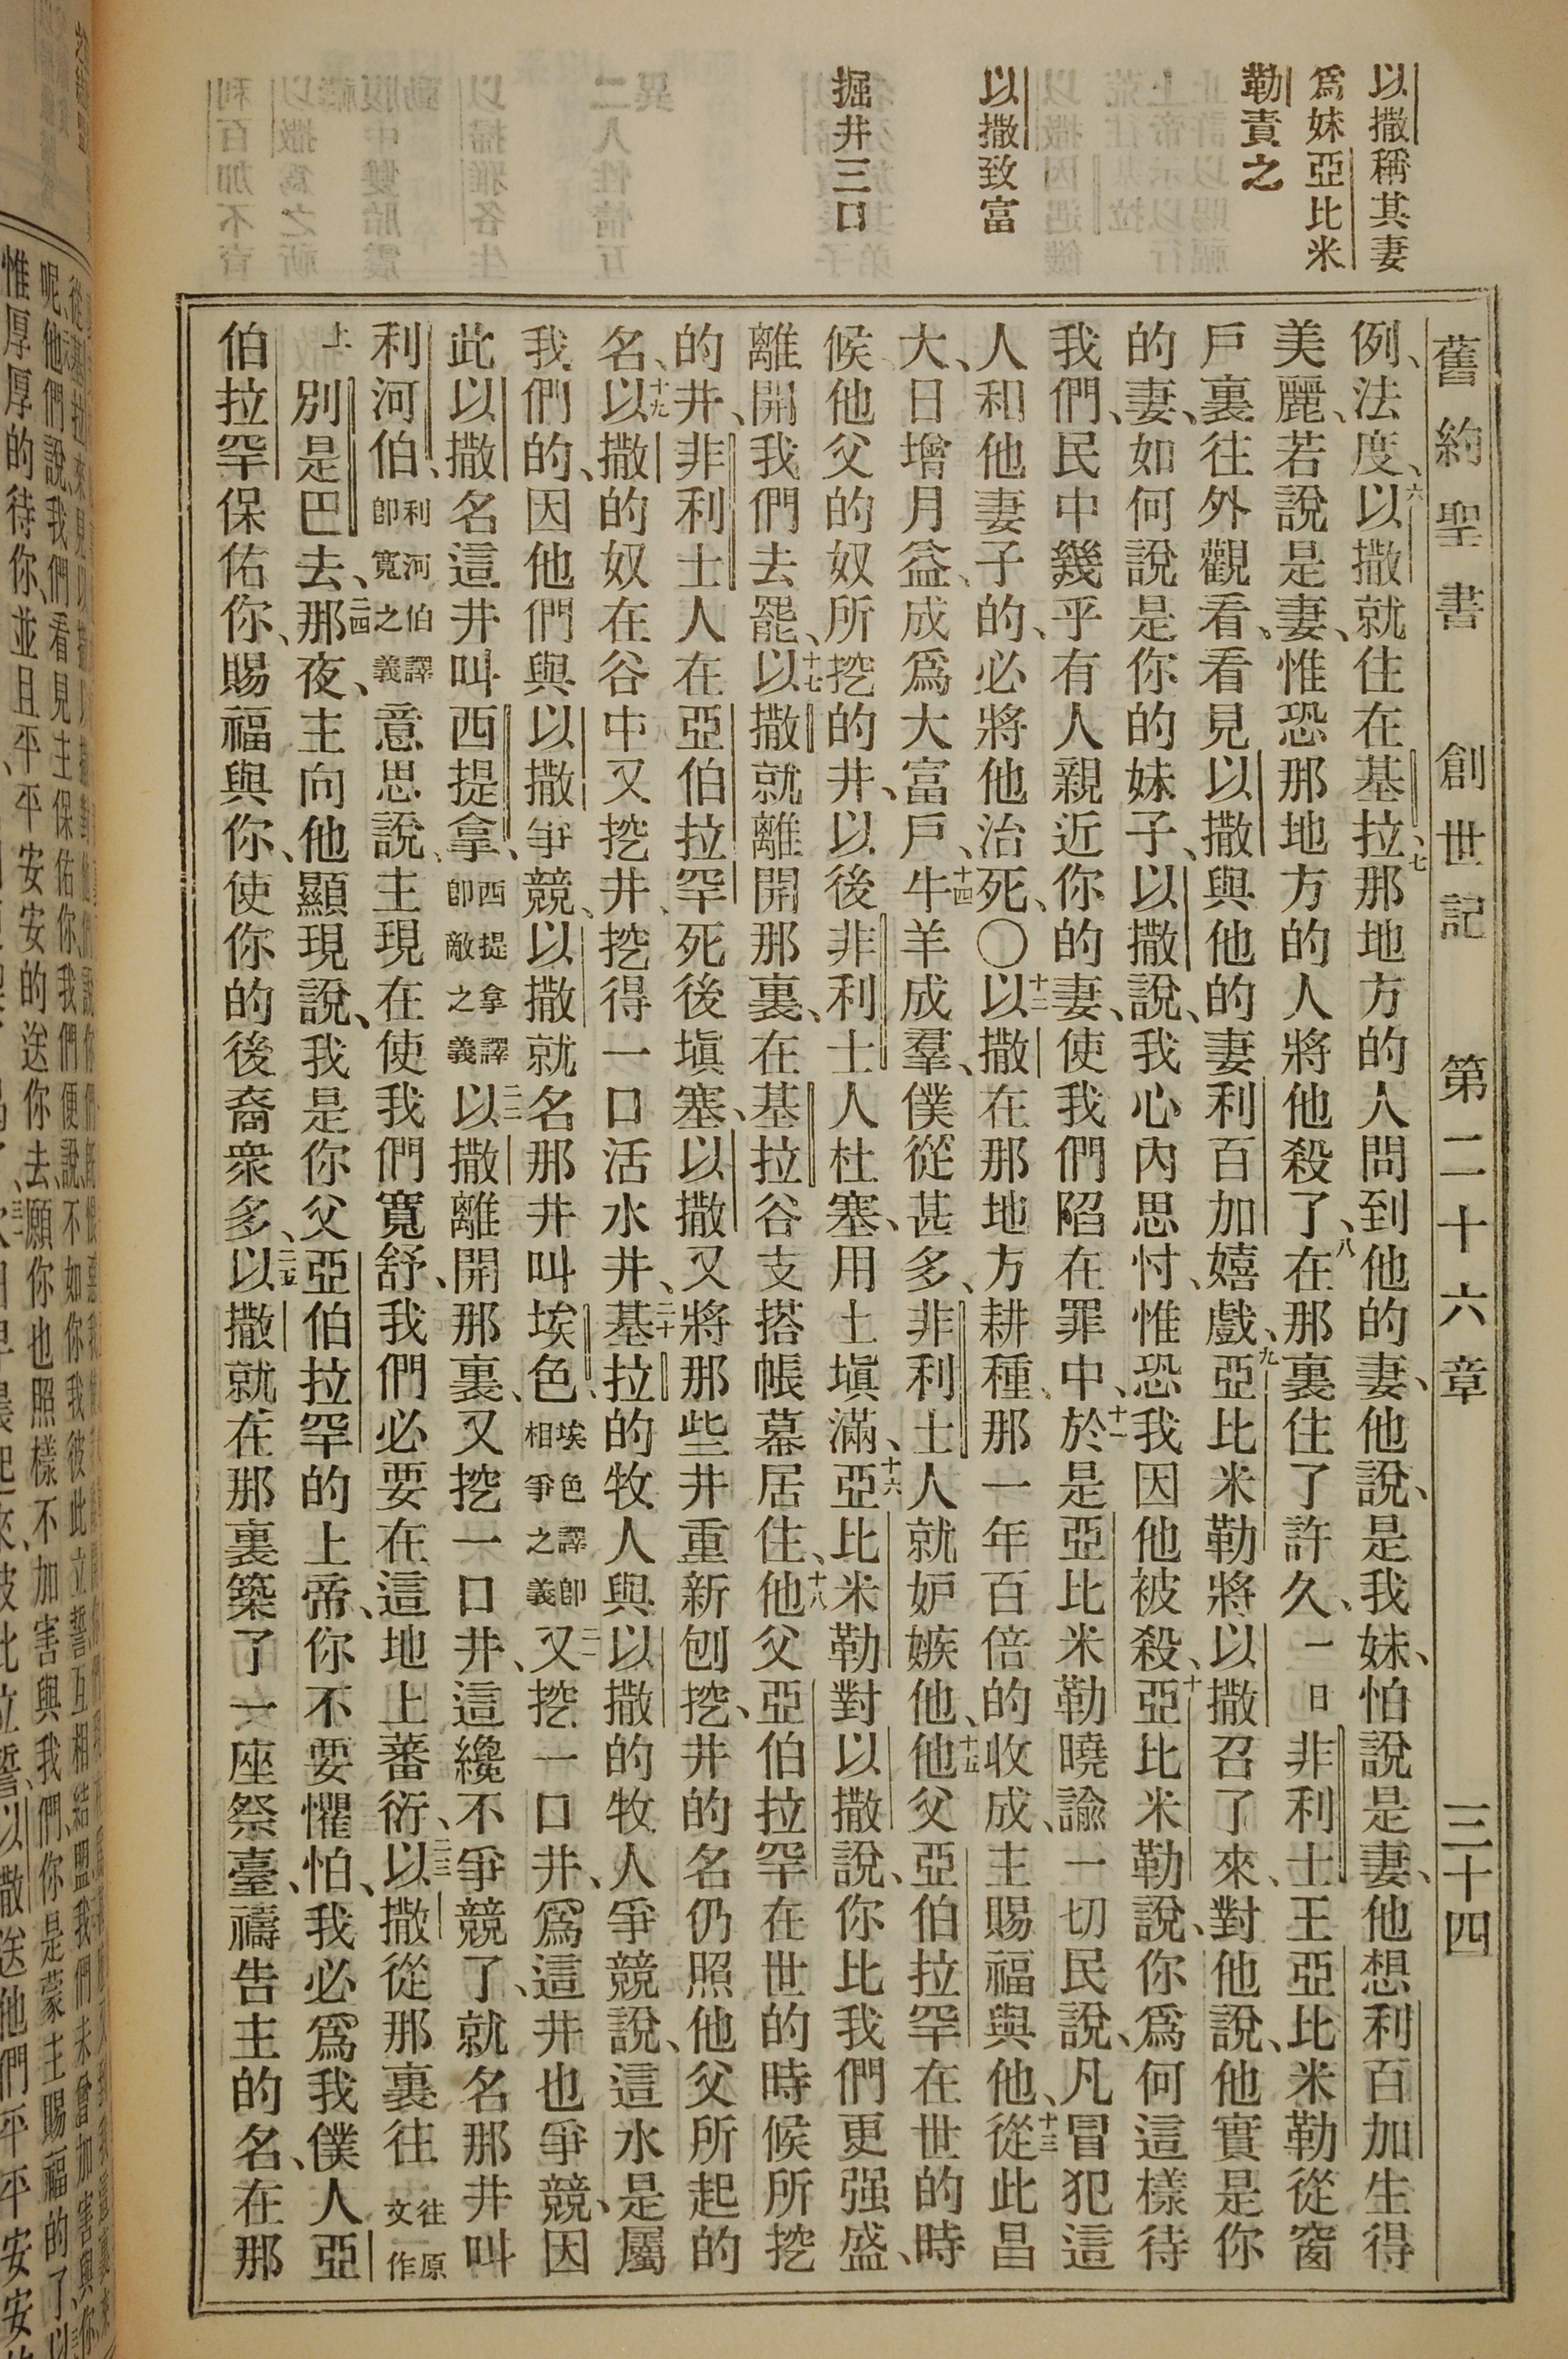 以撒稱其妻
爲妹亞比米
勒責之
以撒致富
掘井三口
舊約聖書 創世記 第二十六章 三十四
例、法度、六以撒就住在基拉、七那地方的人問到他的妻、他說、是我妹、怕說是妻、他想利百加生得
美麗、若說是妻、惟恐那地方的人將他殺了、八在那裏住了許久、一日非利士王亞比米勒從窗
戶裏往外觀看、看見以撒與他的妻利百加嬉戲、九亞比米勒將以撒召了來、對他說、他實是你
的妻、如何說是你的妹子、以撒說、我心內思忖、惟恐我因他被殺、十亞比米勒說、你爲何這樣待
我們、民中幾乎有人親近你的妻、使我們陷在罪中、十一於是亞比米勒曉諭一切民說、凡冒犯這
人和他妻子的、必將他治死、〇十二以撒在那地方耕種、那一年百倍的收成、主賜福與他、十三從此昌
大、日增月益、成爲大富戶、十四牛羊成羣、僕從甚多、非利士人就妒嫉他、十五他父亞伯拉罕在世的時
候他父的奴所挖的井、以後非利士人杜塞、用土塡滿、十六亞比米勒對以撒說、你比我們更强盛、
離開我們去罷、十七以撒就離開那裏、在基拉谷支搭帳幕居住、十八他父亞伯拉罕在世的時候所挖
的井、非利士人在亞伯拉罕死後塡塞、以撒又將那些井重新刨挖、井的名仍照他父所起的
名、十九以撒的奴在谷中又挖井、挖得一口活水井、二十基拉的牧人與以撒的牧人爭競說、這水是屬
我們的、因他們與以撒爭競、以撒就名那井叫埃色、埃色譯卽相爭之義二一又挖一口井、爲這井也爭競、因
此以撒名這井叫西提拿、西提拿譯卽敵之義二二以撒離開那裏、又挖一口井、這纔不爭競了、就名那井叫
利河伯、利河伯譯卽寬之義意思說、主現在使我們寬舒、我們必要在這地上蕃衍、二三以撒從那裏往往原文作
上別是巴去、二四那夜、主向他顯現說、我是你父亞伯拉罕的上帝、你不要懼怕、我必爲我僕人亞
伯拉罕保佑你、賜福與你、使你的後裔衆多、二五以撒就在那裏築了一座祭臺、禱告主的名、在那